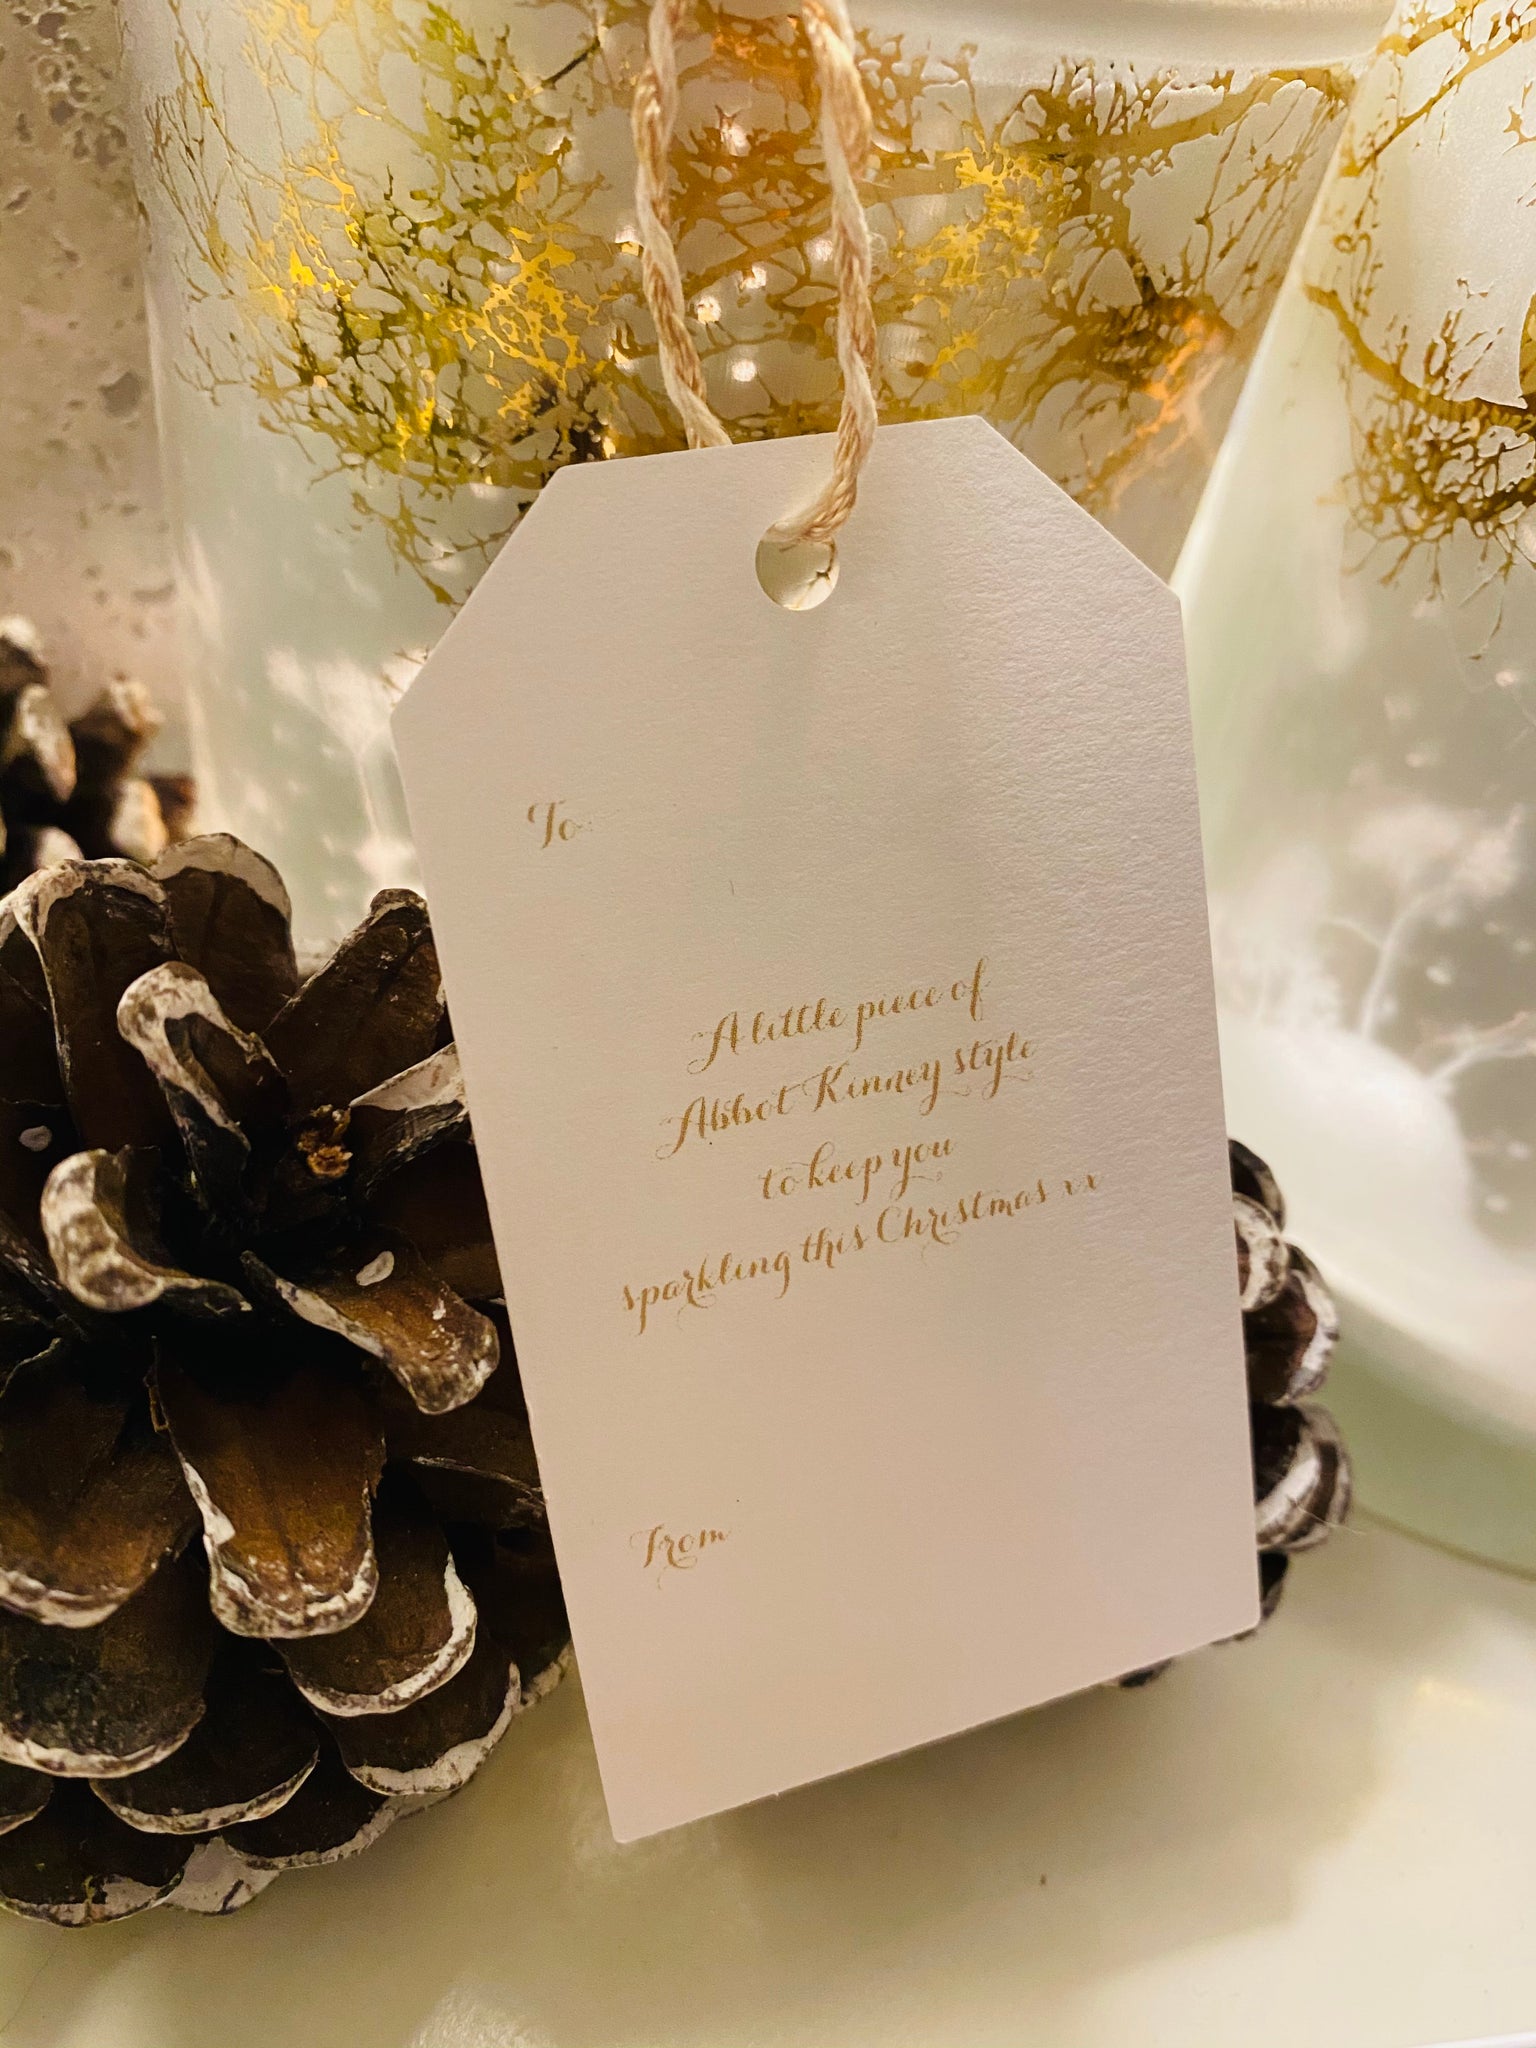 To
A little piece of
Abbot Kinney style
to keep you
sparkling this Christmas xx
From